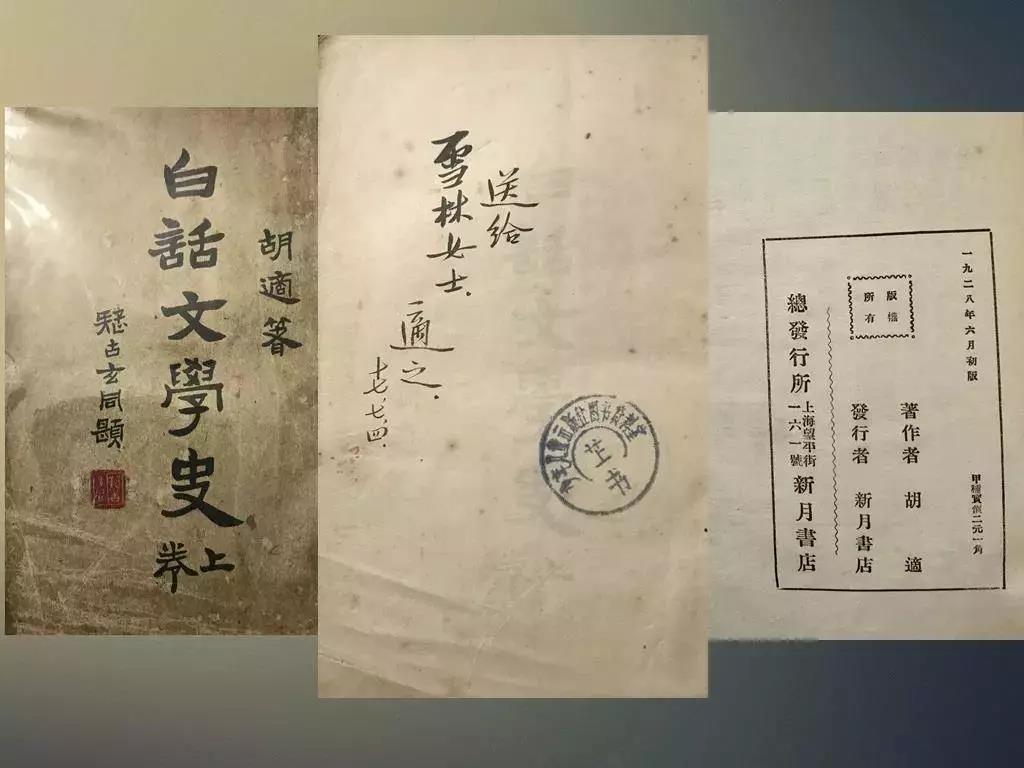 胡適箸
白話文學史
上卷
疑古玄同題
送給
雪林女士.
適之.
十七、七、四.
一九二八年六月初版
甲種實價二元一角
著作者 胡適
版權
所有
發行者 新月書店
總發行所
上海望平街
一六一號
新月書店